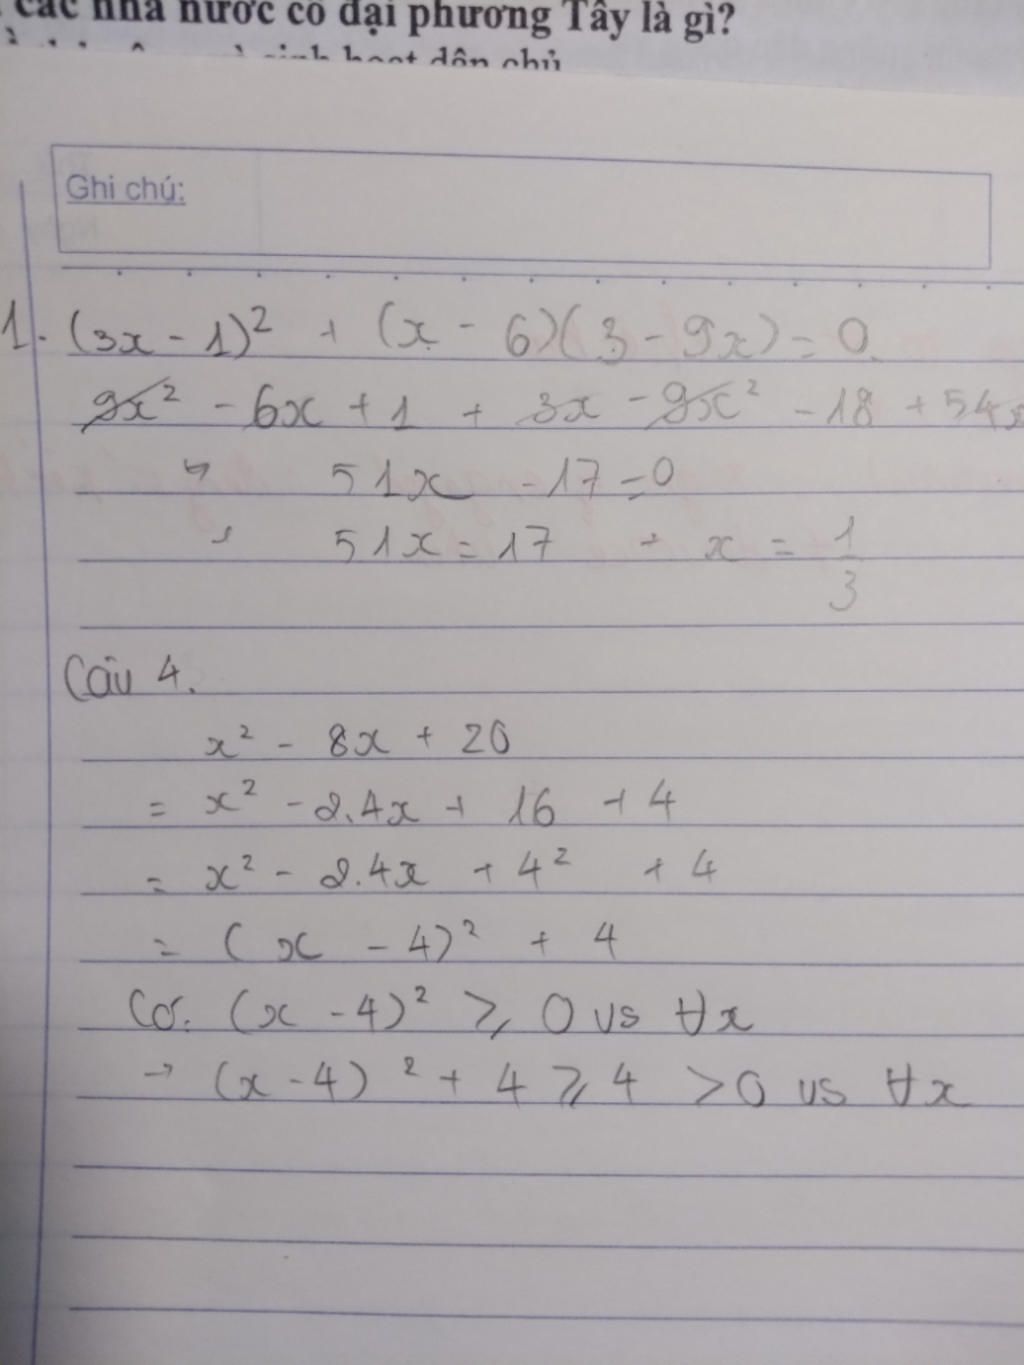 các nhà nước cổ đại phương Tây là gì?
sinh hoạt dân chủ
Ghi chú:
1. (3x - 1)² + (x - 6)(3 - 9x) = 0.
9x² - 6x + 1 + 3x - 9x² - 18 + 54x
51x - 17 = 0
51x = 17 → x = 1/3
Câu 4.
x² - 8x + 20
= x² - 2.4x + 16 + 4
= x² - 2.4x + 4² + 4
= (x - 4)² + 4
Có: (x - 4)² ≥ 0 vs ∀x
→ (x - 4)² + 4 ≥ 4 > 0 vs ∀x